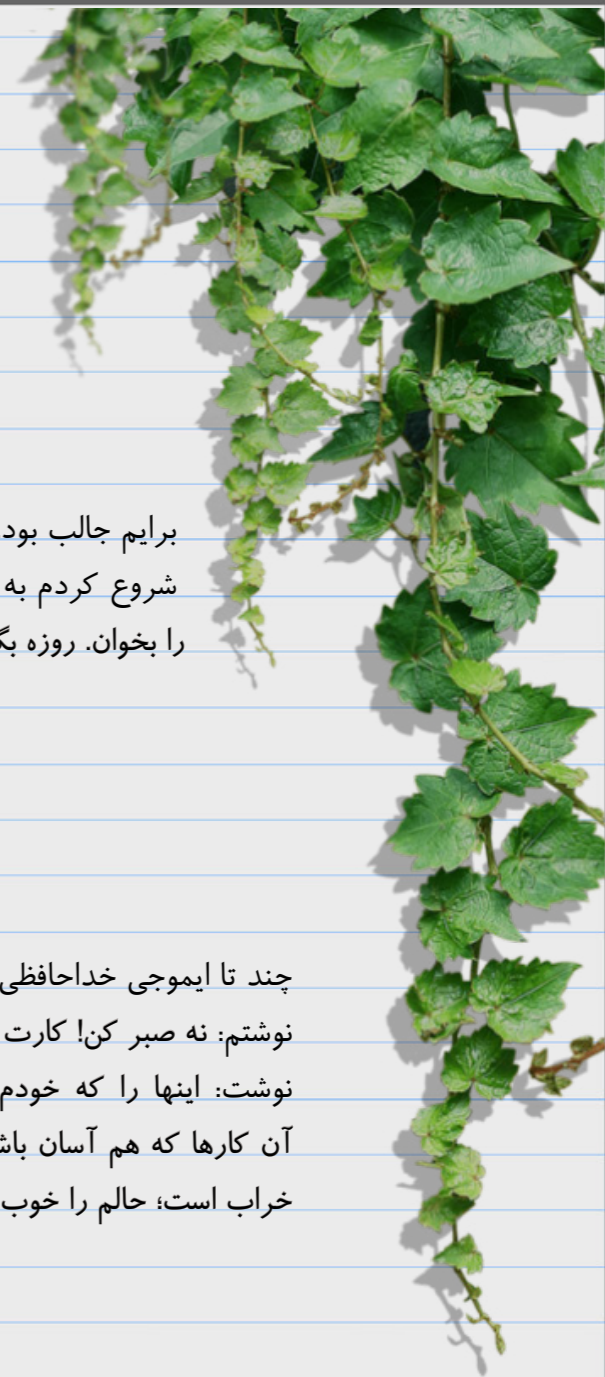 برایم جالب بود
شروع کردم به
را بخوان. روزه
چند تا ایموجی خداحافظی
نوشتم: نه صبر کن! کارت
نوشت: اینها را که خودم
آن کارها که هم آسان
خراب است؛ حالم را خوب